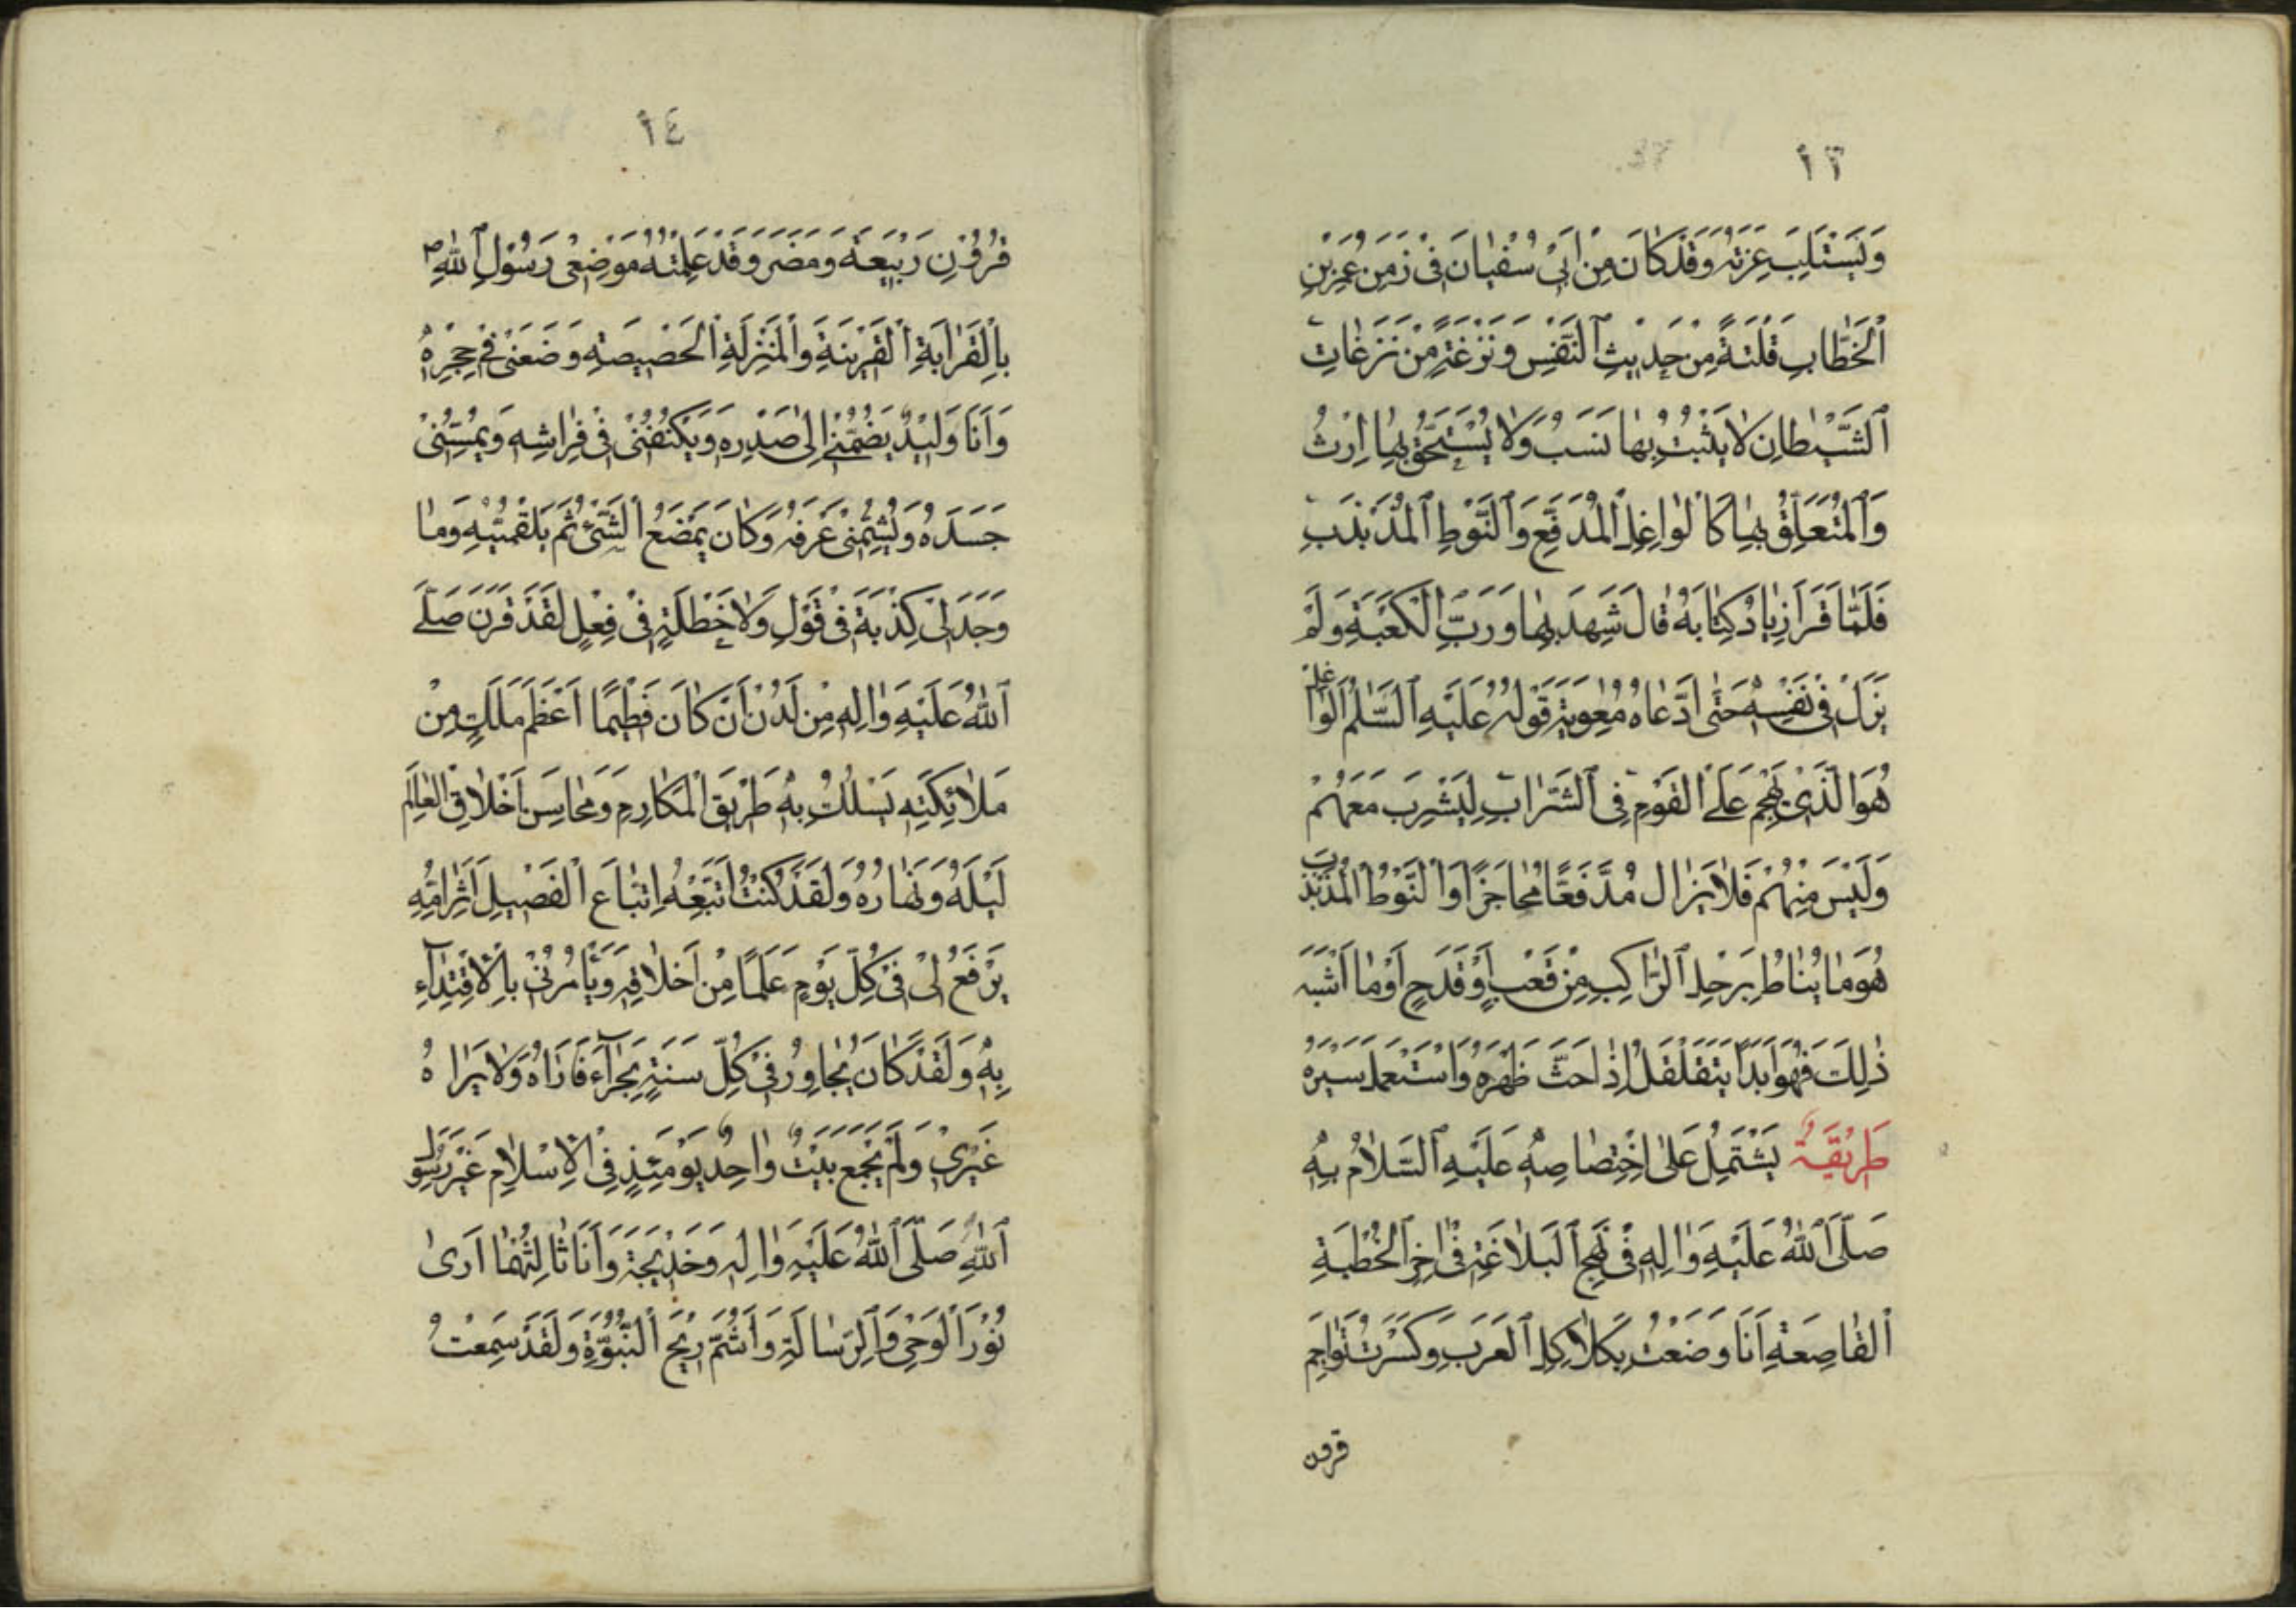 ١٣
وَيَسْتَلِبَ غِرَّتَهُ وَقَدْ كَانَ مِنْ أَبِى سُفْيَانَ فِى زَمَنِ عُمَرَ بْنِ
ٱلْخَطَّابِ فَلْتَةٌ مِنْ حَدِيثِ ٱلنَّفْسِ وَنَزْغَةٌ مِنْ نَزَغَاتِ
ٱلشَّيْطَانِ لَا يَثْبُتُ بِهَا نَسَبٌ وَلَا يُسْتَحَقُّ بِهَا إِرْثٌ
وَٱلْمُتَعَلِّقُ بِهَا كَالْوَاغِلِ ٱلْمُدَفَّعِ وَٱلنَّوْطِ ٱلْمُذَبْذَبِ
فَلَمَّا قَرَأَ زِيَادٌ كِتَابَهُ قَالَ شَهِدَ بِهَا وَرَبِّ ٱلْكَعْبَةِ وَلَمْ
يَزَلْ فِى نَفْسِهِ حَتَّى ادَّعَاهُ مُعٰوِيَةُ قَوْلُهُ عَلَيْهِ ٱلسَّلٰمُ الْوَاغِلُ
هُوَ الَّذِى يَهْجُمُ عَلَى ٱلْقَوْمِ فِى ٱلشَّرَابِ لِيَشْرِبَ مَعَهُمْ
وَلَيْسَ مِنْهُمْ فَلَا يَزَالُ مُدَفَّعًا مُحَاجَزًا وَالنَّوْطُ الْمُذَبْذَبُ
هُوَ مَا يُنَاطُ بِرَحْلِ ٱلرَّاكِبِ مِنْ قَعْبٍ أَوْ قَدَحٍ أَوْ مَا أَشْبَهَ
ذٰلِكَ فَهُوَ أَبَدًا يَتَقَلْقَلُ إِذَا حَثَّ ظَهْرَهُ وَاسْتَعْمَلَ سَيْرَهُ
طَرِيْقَةٌ يَشْتَمِلُ عَلَى اخْتِصَاصِهِ عَلَيْهِ ٱلسَّلَامُ بِهِ
صَلَّى ٱللّٰهُ عَلَيْهِ وَاٰلِهِ فِى نَهْجِ ٱلْبَلَاغَةِ فِى اٰخِرِ ٱلْخُطْبَةِ
ٱلْقَاصِعَةِ أَنَا وَضَعْتُ بِكَلَاكِلِ ٱلْعَرَبِ وَكَسَرْتُ نَوَاجِمَ
قرون
١٤
قُرُوْنِ رَبِيْعَةَ وَمُضَرَ وَقَدْ عَلِمْتُمْ مَوْضِعِى رَسُوْلِ ٱللّٰهِ ص
بِالْقَرَابَةِ ٱلْقَرِيْبَةِ وَالْمَنْزِلَةِ ٱلْخَصِيصَةِ وَضَعَنِى فِى حِجْرِهِ
وَأَنَا وَلِيْدٌ يَضُمُّنِى إِلٰى صَدْرِهِ وَيَكْنُفُنِى فِى فِرَاشِهِ وَيُمِسُّنِى
جَسَدَهُ وَيُشِمُّنِى عَرْفَهُ وَكَانَ يَمْضَغُ ٱلشَّىْءَ ثُمَّ يُلْقِمُنِيْهِ وَمَا
وَجَدَ لِى كِذْبَةً فِى قَوْلٍ وَلَا خَطْلَةً فِى فِعْلٍ لَقَدْ قَرَنَ صَلَّى
ٱللّٰهُ عَلَيْهِ وَاٰلِهِ مِنْ لَدُنْ أَنْ كَانَ فَطِيمًا أَعْظَمَ مَلَكٍ مِنْ
مَلَائِكَتِهِ يَسْلُكُ بِهِ طَرِيْقَ الْمَكَارِمِ وَمَحَاسِنَ أَخْلَاقِ الْعَالَمِ
لَيْلَهُ وَنَهَارَهُ وَلَقَدْ كُنْتُ أَتَّبِعُهُ اتِّبَاعَ ٱلْفَصِيلِ أَثَرَ أُمِّهِ
يَرْفَعُ لِى فِى كُلِّ يَوْمٍ عَلَمًا مِنْ أَخْلَاقِهِ وَيَأْمُرُنِى بِالْاِقْتِدَآءِ
بِهِ وَلَقَدْ كَانَ يُجَاوِرُ فِى كُلِّ سَنَةٍ بِحِرَآءَ فَأَرَاهُ وَلَا يَرَاهُ
غَيْرِى وَلَمْ يَجْمَعْ بَيْتٌ وَاحِدٌ يَوْمَئِذٍ فِى الْإِسْلَامِ غَيْرَ رَسُوْلِ
ٱللّٰهِ صَلَّى ٱللّٰهُ عَلَيْهِ وَاٰلِهِ وَخَدِيْجَةَ وَأَنَا ثَالِثُهُمَا أَرَى
نُوْرَ ٱلْوَحْىِ وَٱلرِّسَالَةِ وَأَشُمُّ رِيْحَ ٱلنُّبُوَّةِ وَلَقَدْ سَمِعْتُ